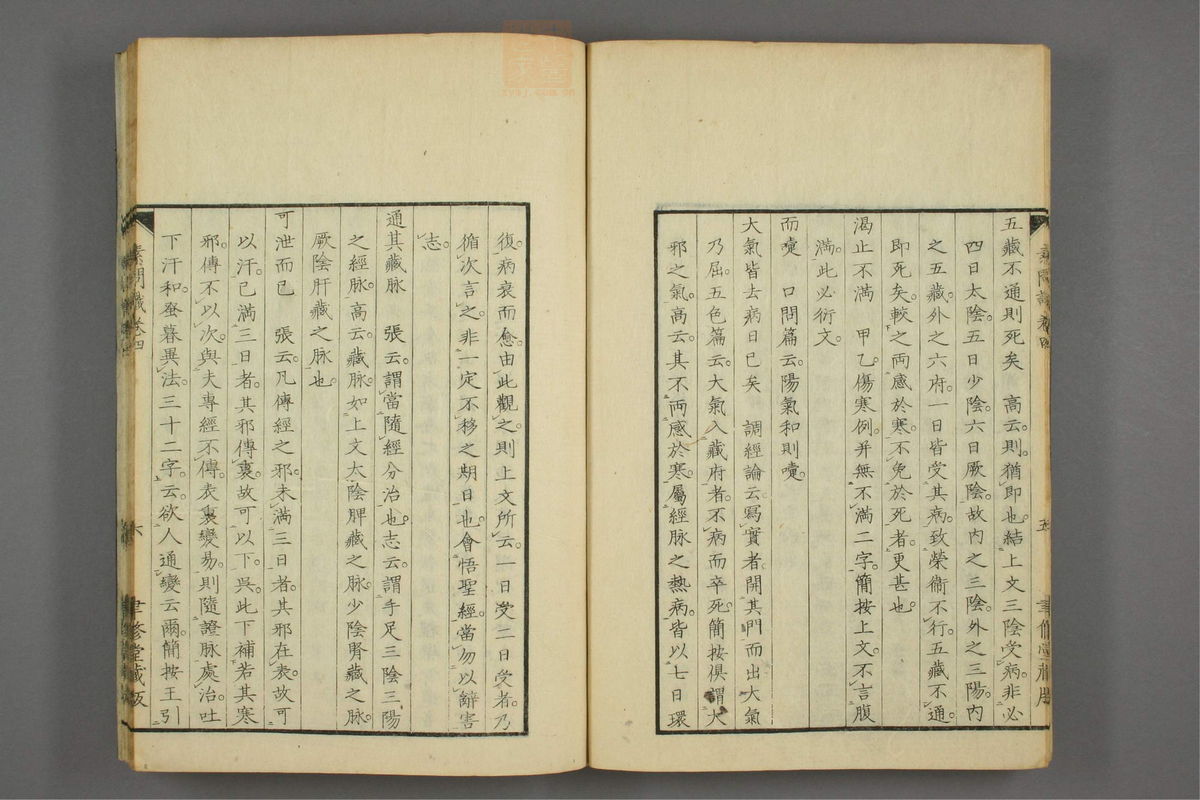 五藏不通則死矣　高云。則。猶即也。結上文三陰受病。非必
四日太陰。五日少陰。六日厥陰。故內之三陰。外之三陽。內
之五藏。外之六府。一日皆受其病。致榮衞不行。五藏不通。
即死矣。較之兩感於寒。不免於死者。更甚也。
渴止不滿　甲乙。傷寒例。幷無不滿二字。簡按上文。不言腹
滿。此必衍文。
而嚏　口問篇云。陽氣和則嚏。
大氣皆去病日已矣　調經論云。寫實者。開其門而出大氣
乃屈。五色篇云。大氣入藏府者。不病而卒死。簡按俱謂大
邪之氣。高云。其不兩感於寒。屬經脈之熱病。皆以七日環
復。病衰而愈。由此觀之。則上文所云。一日受。二日受者。乃
循次言之。非一定不移之期日也。會悟聖經。當勿以辭害
志。
通其藏脈　張云。謂當隨經分治也。志云。謂手足三陰三陽
之經脈。高云。藏脈。如上文太陰脾藏之脈。少陰腎藏之脈。
厥陰肝藏之脈也。
可泄而已　張云。凡傳經之邪。未滿三日者。其邪在表。故可
以汗。已滿三日者。其邪傳裏。故可以下。吳。此下補若其寒
邪傳不以次。與夫專經不傳。表裏變易。則隨證脈處治。吐
下汗和。蚤暮異法。三十二字。云。欲人通變云爾。簡按王引
素問識卷四
六
聿修堂藏板
五